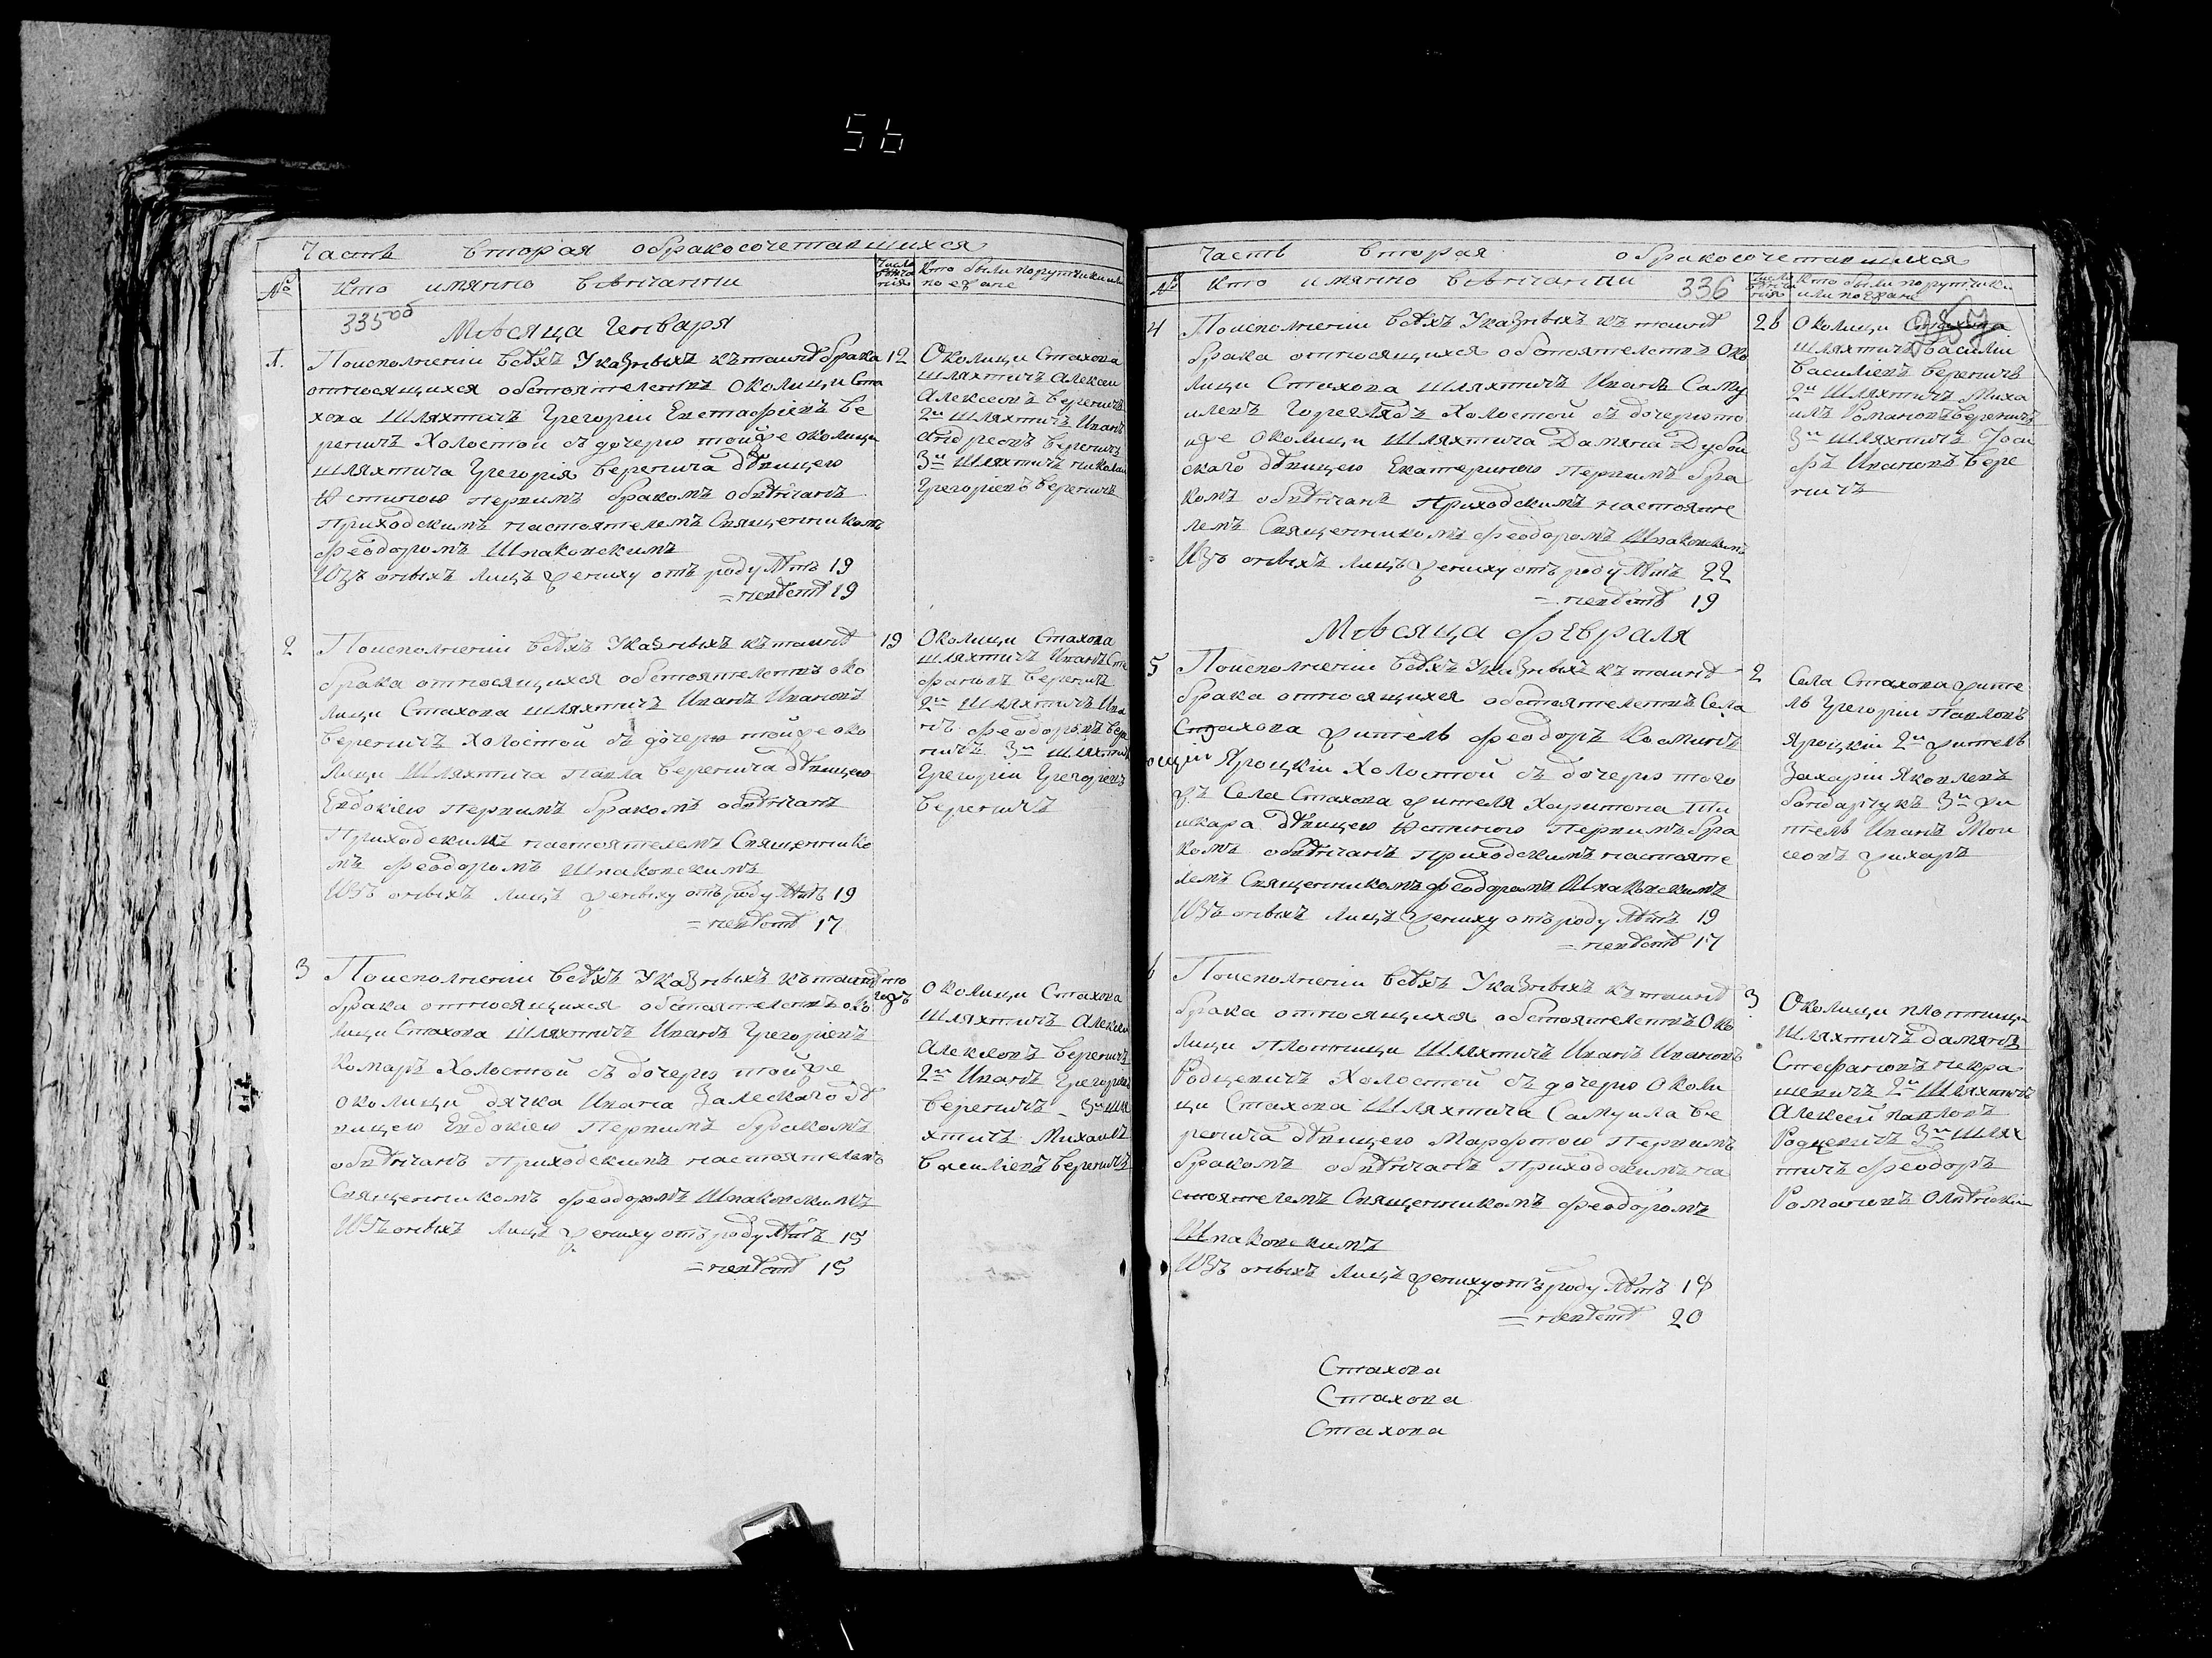 56
Часть вторая о бракосочетавшихся
№
Кто имянно венчанни
Число венчания
Кто были поручики или поезжане
335об
Мѣсяца Генваря
1. Поисполненіи всѣхъ Указныхъ къ таинѣ брака 12
относящихся обстоятелствъ Околици Ста
хова Шляхтичъ Григорій Евстафіевъ Ве
реничъ Холостой съ дочерю тойже околици
шляхтича Григорія Веренича дѣвицею
Устиною первимъ бракомъ обвѣнчанъ
Приходскимъ настоятелемъ Священникомъ
Феодоромъ Шпаковскимъ
Изъ оныхъ лицъ жениху отъ роду лѣтъ 19
= невѣстѣ 19
Околици Стахова
шляхтичъ Алексеи
Алексеевъ Вереничъ
2й Шляхтичъ Иванъ
Андреевъ Вереничъ
3й Шляхтичъ Николаи
Григоріевъ Вереничъ
2 Поисполненіи всѣхъ Указныхъ къ таинѣ 19
брака относящихся обстоятелствъ око
лици Стахова шляхтичъ Иванъ Ивановъ
Вереничъ холостой съ дочерю тойже око
лици Шляхтича Павла Веренича дѣвицею
Евдокіею первимъ бракомъ обвѣнчанъ
Приходскимъ настоятелемъ Священнико
мъ Феодоромъ Шпаковскимъ
Изъ оныхъ лицъ женыху отъ роду лѣтъ 19
= невѣстѣ 17
Околици Стахова
шляхтичъ Иванъ Сте
фановъ Веренич
2й Шляхтичъ Ива
нъ Феодоровъ Вере
ничъ 3й шляхтичъ
Григорій Григориевъ
Вереничъ
3 Поисполненіи всѣхъ Указныхъ къ таинѣ то
брака относящихся обстоятелствъ око гожъ
лици Стахова шляхтичъ Иванъ Григоріевъ
Комаръ Холостой съ дочерю тойже
околици дячка Ивана Залескаго дѣ
вицею Евдокіею Первимъ бракомъ
обвѣнчанъ Приходскимъ настоятелемъ
Священникомъ Феодоромъ Шпаковскимъ
Изъ оныхъ лицъ жениху отъ роду лѣтъ 15
= невѣстѣ 15
Околици Стахова
Шляхтичъ Алексеи
Алексеевъ Веренич
2й Иванъ Григориев
Вереничъ - 3й шля
хтичъ Михаилъ
Василіевъ Веренич
Часть вторая о бракосочетавшихся
№
Кто имянно венчанни
336
Число венчания
Кто были поручики или поезжане
4 Поисполненіи всѣхъ Указныхъ къ таинѣ 26
брака относящихся обстоятелствъ Око
лици Стахова шляхтичъ Иванъ Саму
илевъ Горегляд Холостой съ дочерю то
йже Околици Шляхтича Дамяна Дубои
скаго дѣвицею Екатериною первимъ бра
комъ обвѣнчанъ Приходскимъ настояте
лемъ Священникомъ Феодоромъ Шпаковскимъ
Изъ оныхъ лицъ жениху отъ роду лѣтъ 22
= невѣстѣ 19
Околици Стахова
шляхтичъ Василій
Василіевъ Веренич
2й Шляхтичъ Миха
илъ Романовъ Веренич
3й Шляхтичъ Іоси
фъ Ивановъ Вере
ничъ
Мѣсяца Февраля
5 Поисполненіи всѣхъ Указныхъ къ таинѣ 2
брака относящихся обстоятелствъ Села
Стахова житель Феодоръ Косминъ
Яроцкій Холостой съ дочерю того
жъ Села Стахова жителя Харитона
дѣвицею Устиною первимъ бра
комъ обвѣнчанъ приходскимъ настояте
лемъ Священникомъ Феодоромъ Шпаковскимъ
Изъ оныхъ лицъ жениху отъ роду лѣтъ 19
= невѣстѣ 17
Села Стахова жите
ль Григорій Павловъ
Яроцкій 2й житель
Захарій Яковлевъ
Бондарчукъ 3й жи
тель Иванъ Мои
сеовъ Жихаръ
6 Поисполненіи всѣхъ Указныхъ къ таинѣ 3
брака относящихся обстоятелствъ Око
лици Плотници Шляхтичъ Иванъ Ивановъ
Родцевичъ Холостой съ дочерю Околи
ци Стахова Шляхтича Самуила Ве
ренича дѣвицею Марфою первимъ
бракомъ обвѣнчанъ приходскимъ на
стоятелемъ Священникомъ Феодоромъ
Шпаковскимъ
Изъ оныхъ лицъ жениху отъ роду лѣтъ 19
= невѣстѣ 20
Околици Плотници
Шляхтичъ Дамянъ
Стефановъ Некра
шевичъ 2й Шляхтичъ
Алексей Павловъ
Родцевичъ 3й Шлях
тичъ Феодоръ
Романовъ
Стахова
Стахова
Стахова